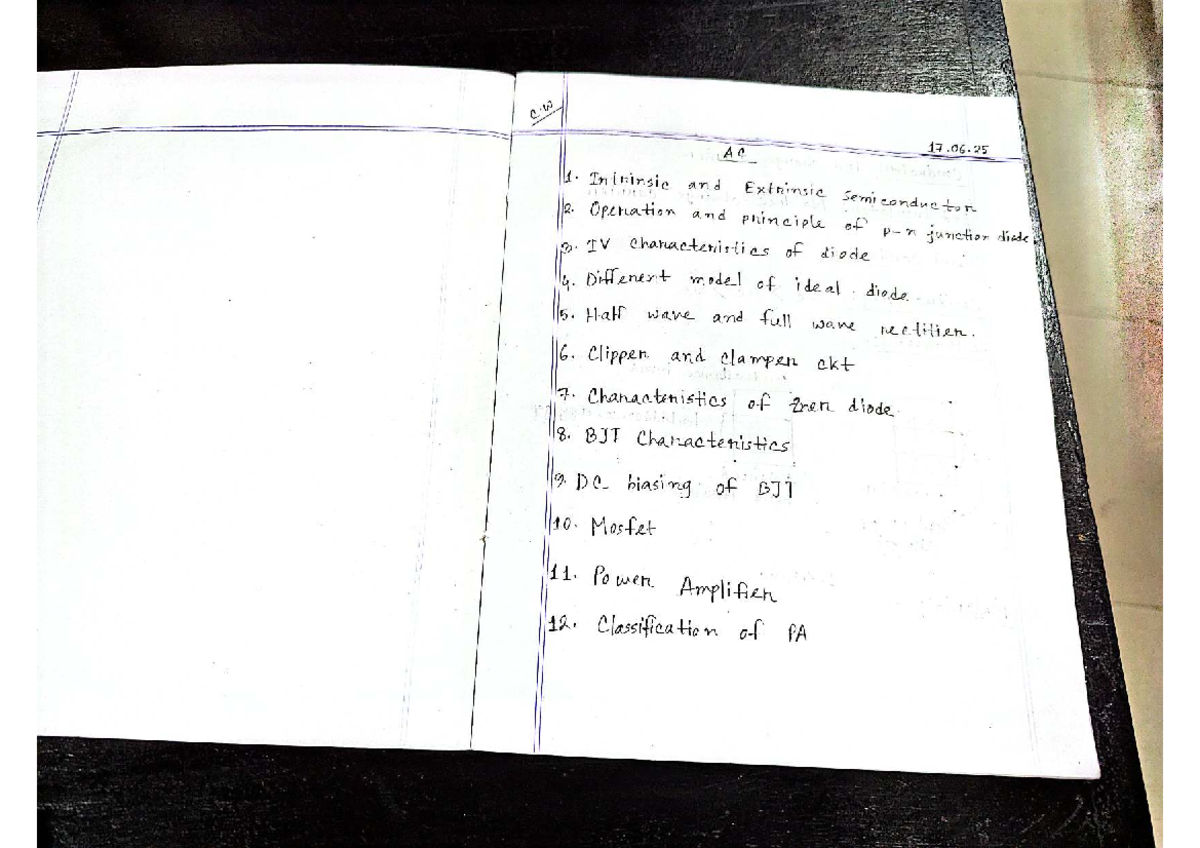 C.W
17.06.25
AC
1. Intrinsic and Extrinsic Semiconductor
2. Operation and principle of p-n junction diode
3. IV Characteristics of diode
4. Different model of ideal diode
5. Half wave and full wave rectifier.
6. Clipper and clamper ckt
7. Characteristics of Zner diode
8. BJT Characteristics
9. DC biasing of BJT
10. Mosfet
11. Power Amplifier
12. Classification of PA